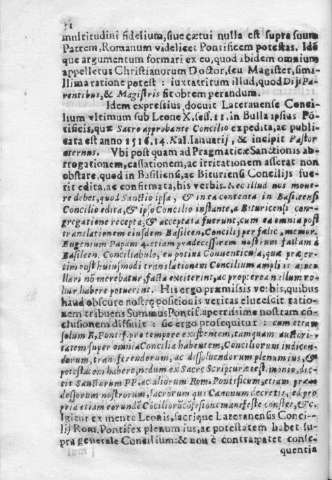 multitudini fidelium, siue cætui nulla est supra suum
Patrem, Romanum videlicet Pontificem potestas. Idē
que argumentum formari ex eo, quod ibidem omnium
appelletur Christianorum Doctor, seu Magister, simi-
llima ratione potest: iuxta tritum illud, quod Dijs Pa-
rentibus, & Magistris sit obrem perandum.
Idem expressius, docuit Lateranense Conci
lium vltimum sub Leone X. sess. 11. in Bulla ipsius Pō
tificis, quæ Sacro approbante Concilio expedita, ac publi
cata est anno 1516. 14. Kal. Ianuarij, & incipit Pastor
æternus. Vbi post quam ad Pragmaticæ Sanctionis ab-
rogationem, cassationem, ac irritationem asserat non
obstare, quod in Basiliensi, ac Bituricensi Concilijs fue
rit edita, ac confirmata, his verbis. Nec illud nos moue
re debet, quod Sanctio ipsa, & in ea contenta in Basileensi
Concilio edita, & ipso Concilio instante, a Bituricensi con-
gregatione recepta, & acceptata fuerunt, cum ea omnia post
translationem eiusdem Basileen. Concilij per fælic. memor.
Eugenium Papam 4. etiam prædecessorem nostrum factam à
Basileen. Conciliabulo, eu potius Conuenticula, quæ præser-
tim post huiusmodi translationem Concilium amplius appel
lari nō merebatur, facta extiterint, ac propterea nullum ro-
bur habere potuerint. His ergo præmissis verbis, quibus
haud obscure nostræ positionis veritas elucescit ratio-
nem tribuens Summus Pontif. apertissime nostram cō-
clusionem diffiniit: sic ergo prosequitur: cum etiam
solum R. Pontif. pro tempore existentem, tamquam auctori-
tatem super omnia Concilia habentem, Conciliorum indicen-
dorum, transferendorum, ac dissoluendorum plenum ius, &
potestatem habere, nedum ex Sacræ Scripturæ testimonio, dic-
tis Sanctorum PP. ac aliorum Rom. Pontificum, etiam præ-
decessorum nostrorum, sacrorum qui Canonum decretis, ed pro
pria etiam eorundē Cōciliorū cōfesione manifeste constet, &c.
Igitur ex mente Leonis, sacrique Lateranensis Conci-
lij Rom. Pontifex plenum ius, ac potestatem habet su-
pra generale Concilium: & non è contra: patet conse-
quentia